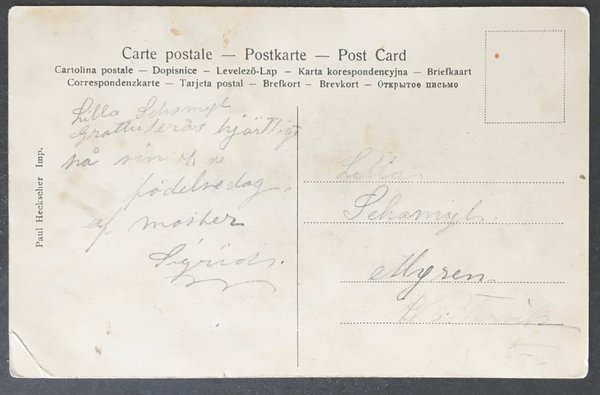 Carte postale — Postkarte — Post Card
Cartolina postale — Dopisnice — Levelező-Lap — Karta korespondencyjna — Briefkaart
Correspondenzkarte — Tarjeta postal — Brefkort — Brevkort — Открытое письмо
Paul Heckscher Imp.
Lilla Schamyl
Gratuleras hjärtligt
på din
födelsedag
af moster
Sigrid.
Lilla
Schamyl
Myren